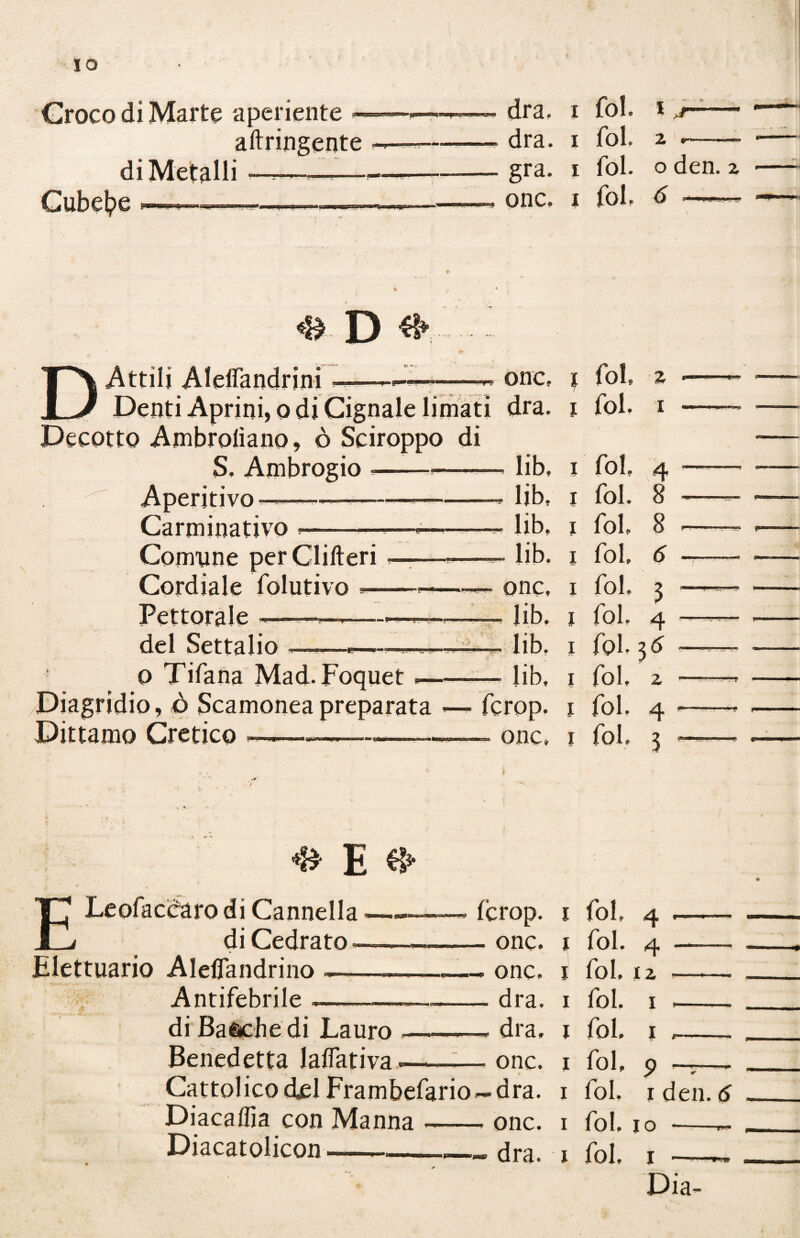 10
Croco di Marte aperiente ——— dra. 1 ſol. 1 —— ——
aſtringente ——— dra. 1 ſol. 2 —— ——
di Metalli ——— gra. 1 ſol. 0 den. 2 ——
Cubebe ——— onc. 1 ſol. 6 —— ——
D
DAttili Aleſſandrini ——— onc. 1 ſol. 2 —— ——
Denti Aprini, o di Cignale limati dra. 1 ſol. 1 —— ——
Decotto Ambroſiano, ò Sciroppo di ——
S. Ambrogio ——— lib. 1 ſol. 4 —— ——
Aperitivo ——— lib. 1 ſol. 8 —— ——
Carminativo ——— lib. 1 ſol. 8 —— ——
Comune per Cliſteri ——— lib. 1 ſol. 6 —— ——
Cordiale ſolutivo ——— onc. 1 ſol. 3 —— ——
Pettorale ——— lib. 1 ſol. 4 —— ——
del Settalio ——— lib. 1 ſol. 36 —— ——
o Tiſana Mad. Foquet ——— lib. 1 ſol. 2 —— ——
Diagridio, ò Scamonea preparata — ſcrop. 1 ſol. 4 —— ——
Dittamo Cretico ——— onc. 1 ſol. 3 —— ——
E
ELeoſaccaro di Cannella ——— ſcrop. 1 ſol. 4 —— ——
di Cedrato ——— onc. 1 ſol. 4 —— ——
Elettuario Aleſſandrino ——— onc. 1 ſol. 12 —— ——
Antifebrile ——— dra. 1 ſol. 1 —— ——
di Bacche di Lauro ——— dra. 1 ſol. 1 —— ——
Benedetta laſſativa ——— onc. 1 ſol. 9 —— ——
Cattolico del Frambeſario — dra. 1 ſol. 1 den. 6 ——
Diacaſſia con Manna ——— onc. 1 ſol. 10 —— ——
Diacatolicon ——— dra. 1 ſol. 1 —— ——
Dia-